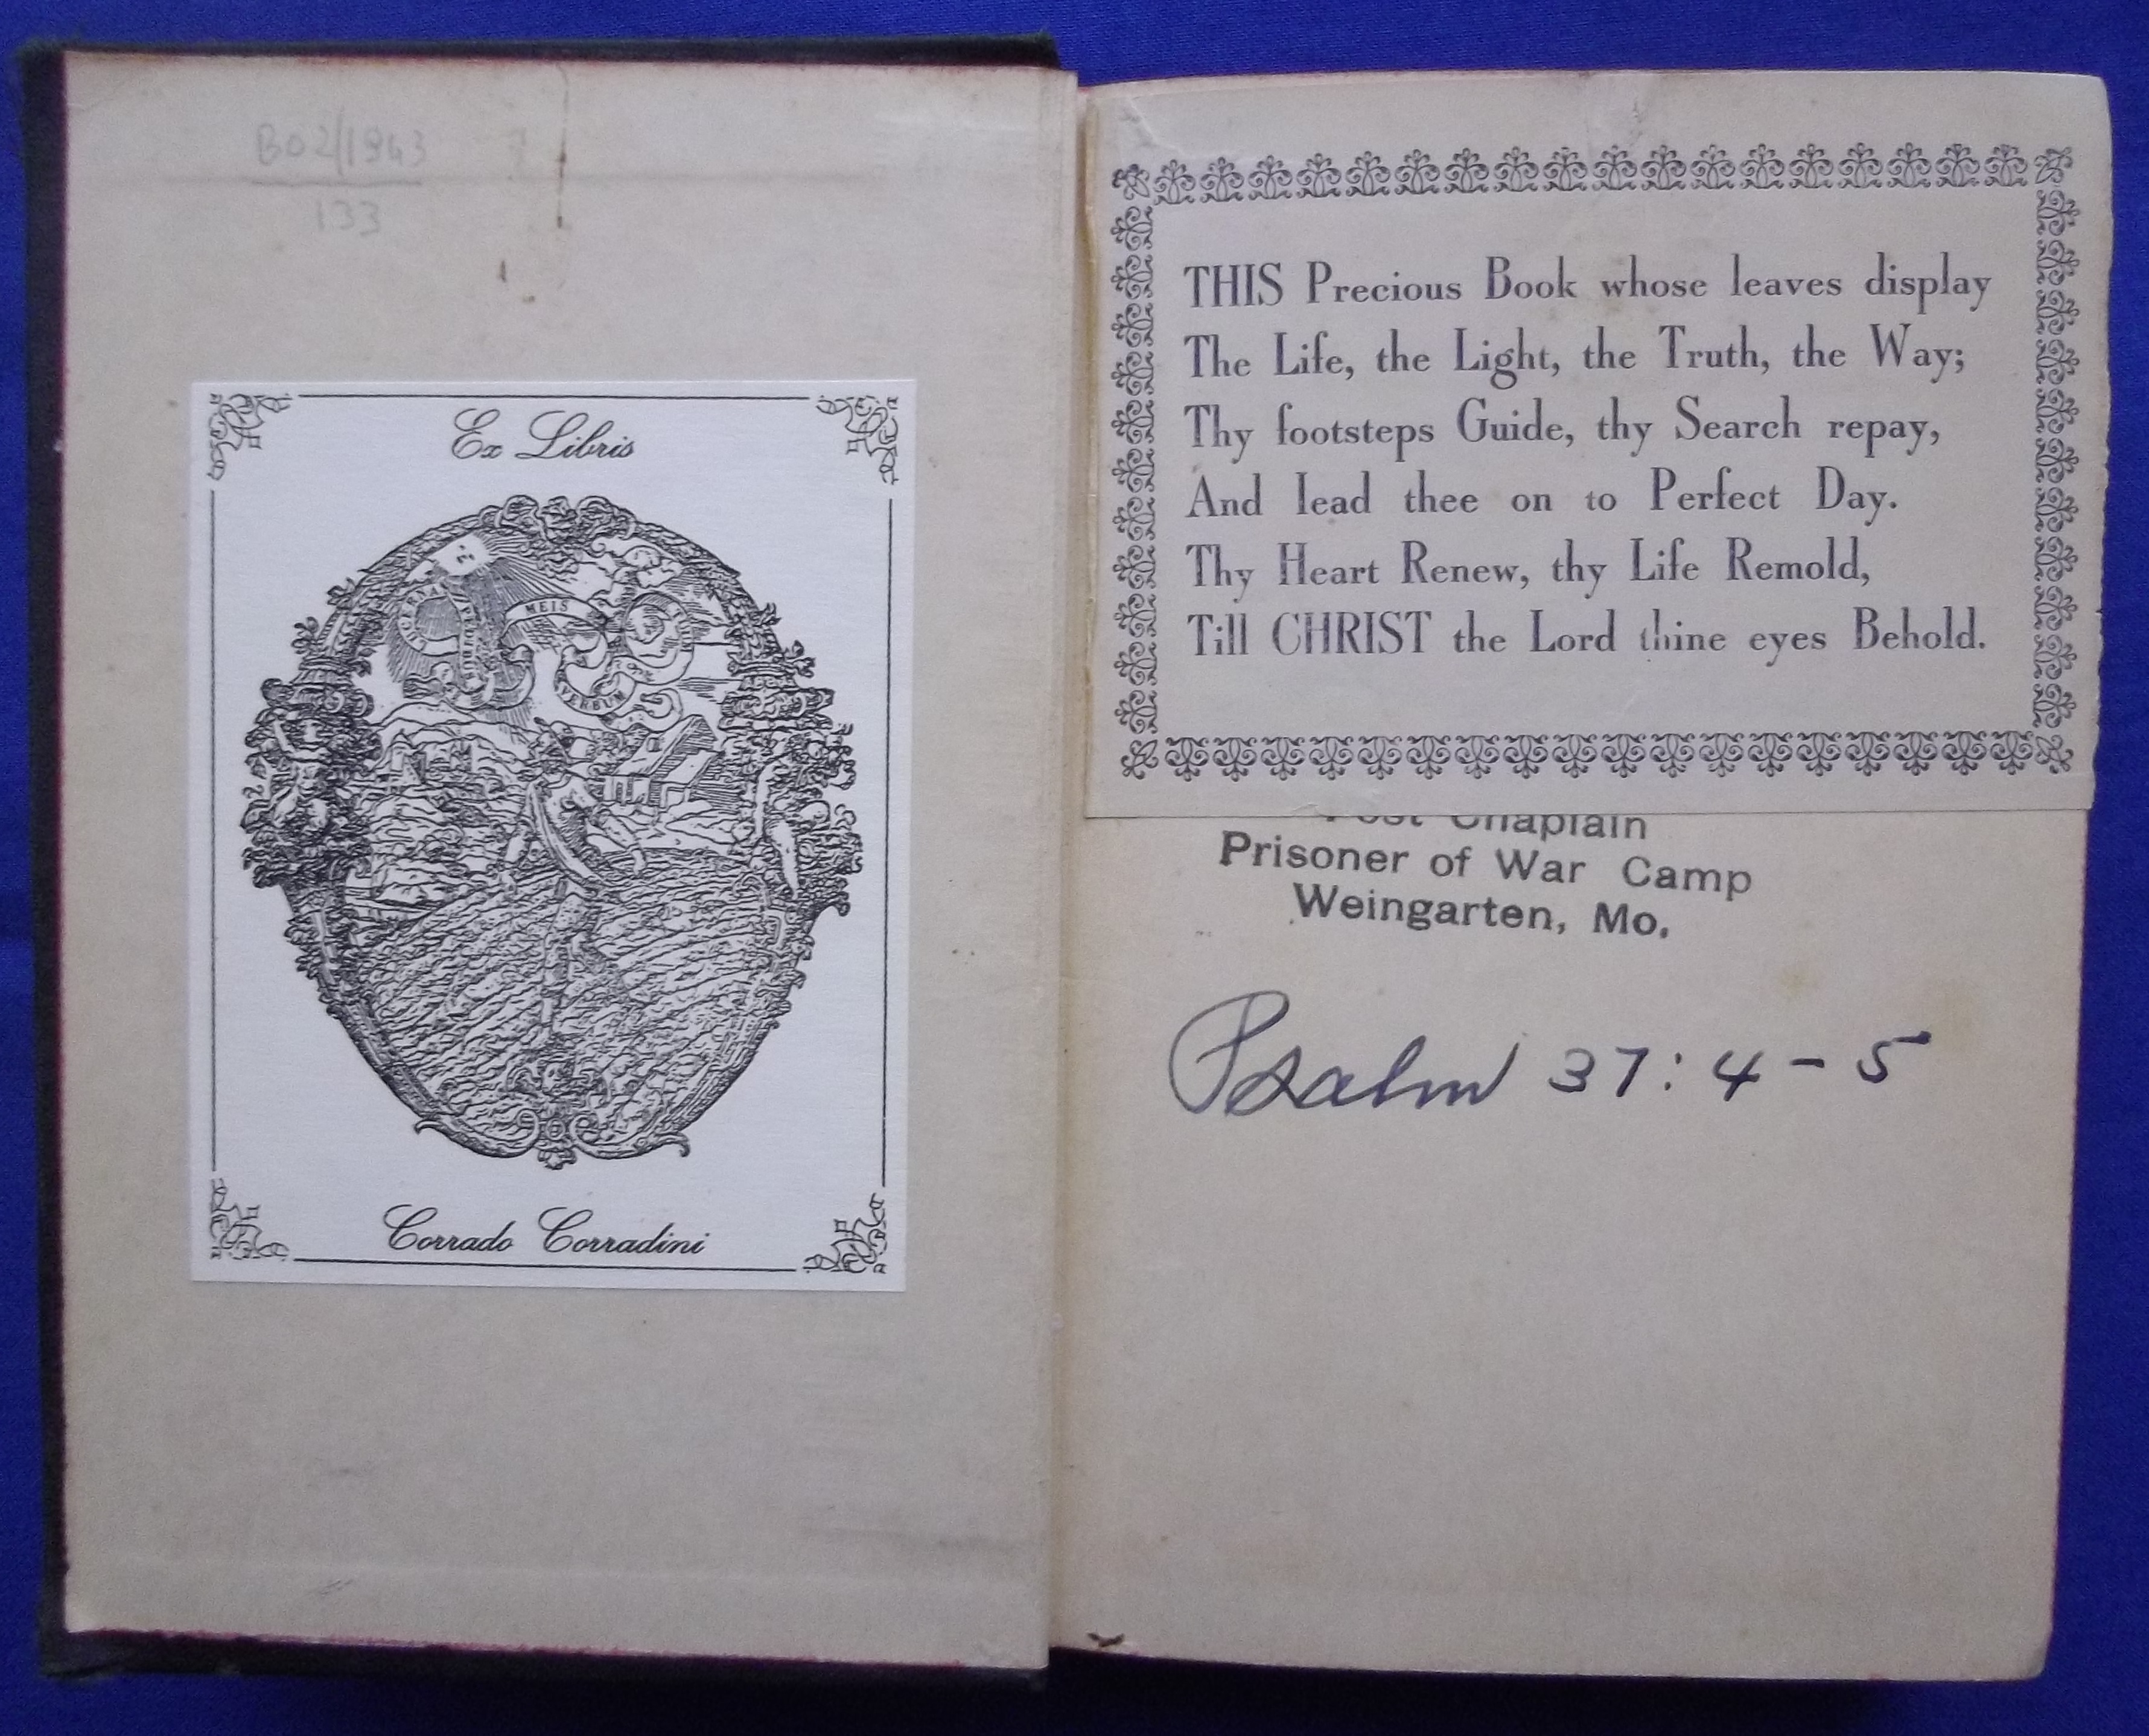 B02/1943
133
Ex Libris
LUCERNA PEDIBUS MEIS VERBUM
Corrado Corradini
THIS Precious Book whose leaves display
The Life, the Light, the Truth, the Way;
Thy footsteps Guide, thy Search repay,
And lead thee on to Perfect Day.
Thy Heart Renew, thy Life Remold,
Till CHRIST the Lord thine eyes Behold.
Post Chaplain
Prisoner of War Camp
Weingarten, Mo.
Psalm 37:4-5